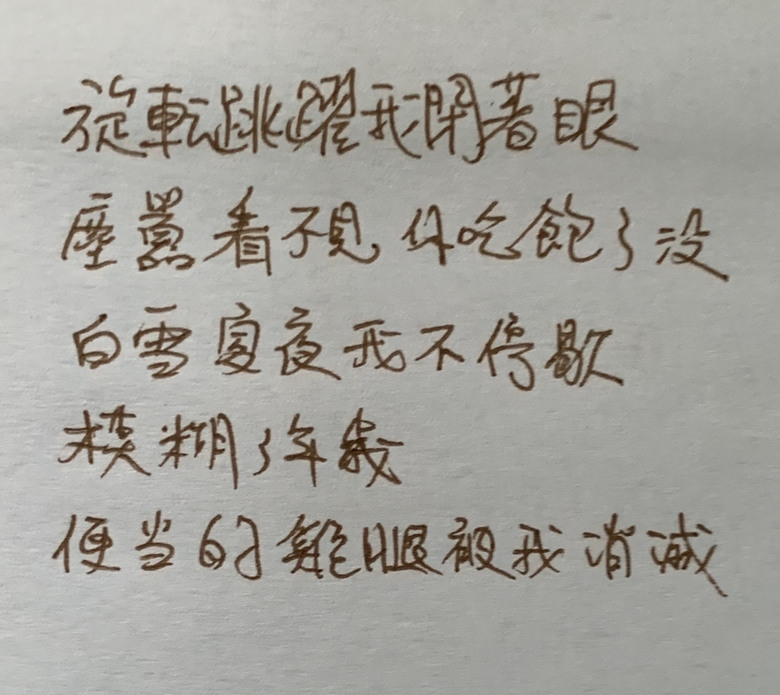 旋転跳躍我閉著眼
塵囂看不見 你吃飽了没
白雪夏夜我不停歇
模糊了年歲
便当的雞腿被我消滅